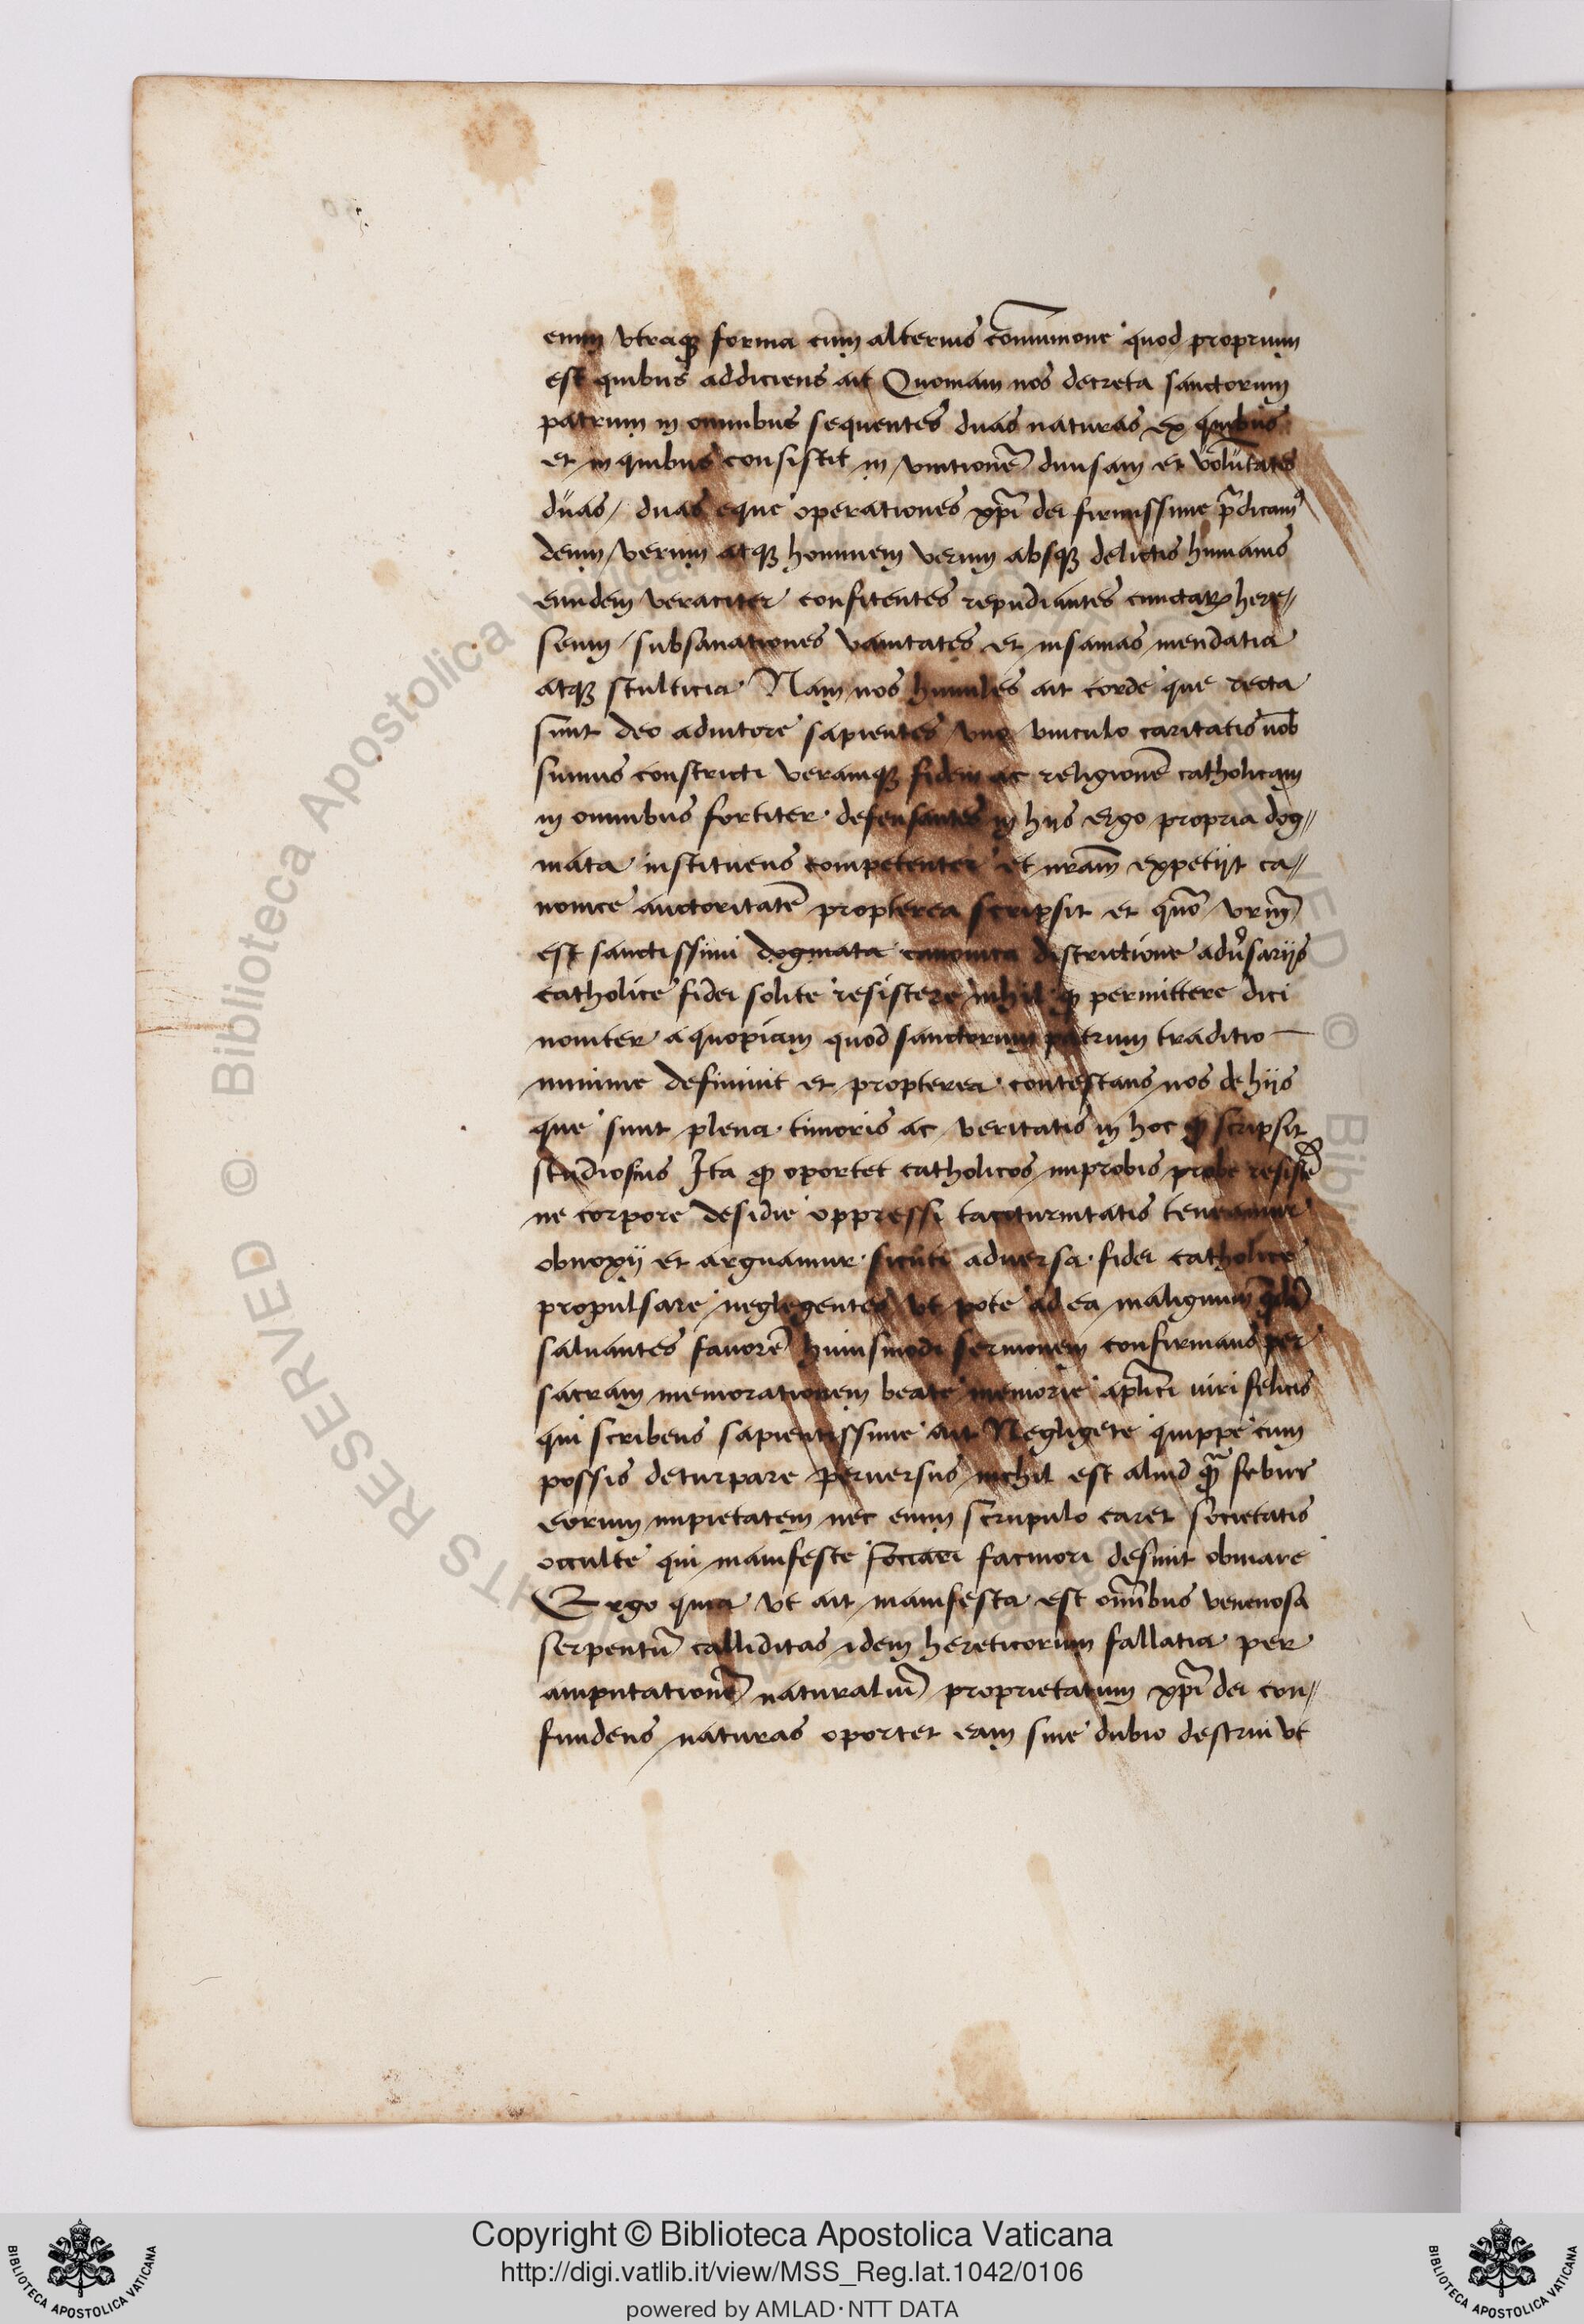 enim vtraqȝ forma cum alterius com̄unione quod proprium
est quibus addiciens ait Quoniam nos decreta sanctorum
patrum in omnibus sequentes duas naturas ex quibus
et in quibus consistit in vnitionē diuisam et volūtates
duas / duas eque operationes xp̄i dei firmissime p̄dicamꝰ
deum verum atqȝ hominem verum absqȝ delictis humanis
eundem veraciter confitentes repudiantes cunctaꝝ here〃
seum / subsanationes vanitates et insanias mendatia
atqȝ stulticia Nam nos humiles ait corde que recta
sunt deo adiutore sapientes vno vinculo caritatis nob̄
sumus constricti veramqȝ fidem ac religionē catholicam
in omnibus fortiter defensantes in hijs ergo propria dog〃
mata instituens competenter et nr̄am expetijt ca〃
nonice auctoritatē propterea scripsit et quō vrm̄
est sanctissimi dogmata canonica districtione adu̓sarijs
catholice fidei solite resistere nihil qȝ permittere dici
nouiter a quopiam quod sanctorum patrum traditio —
minime definiuit et propterea contestans nos de hijs
que sunt plena timoris ac veritatis in hoc scripsit
studiosius Ita ꝙ oportet catholicos improbis probe
ne corpore desidie oppressi taciturnitatis teneamur
obnoxij et arguamur sicuti aduersa fidei catholice
propulsare neglegentes vt pote ad ea malignum
saluantes fauorē huiusmodi sermonem confirmans per
sacram memorationem beate memorie ap̄lici uiri felicis
qui scribens sapientissime ait Negligere quippe cum
possis deturpare peruersus nichil est aliud
eorum impietatem nec enim scrupulo caret societatis
occulte qui manifeste sociari facinori desinit obuiare
Ergo quia vt ait manifesta est om̄ibus venenosa
serpentū calliditas idem hereticorum fallatia per
amputationē naturaliū proprietatum xp̄i dei con〃
fundens naturas oportet eam sine dubio destrui vt
Copyright © Biblioteca Apostolica Vaticana
http://digi.vatlib.it/view/MSS_Reg.lat.1042/0106
powered by AMLAD·NTT DATA
BIBLIOTECA APOSTOLICA VATICANA
BIBLIOTECA APOSTOLICA VATICANA